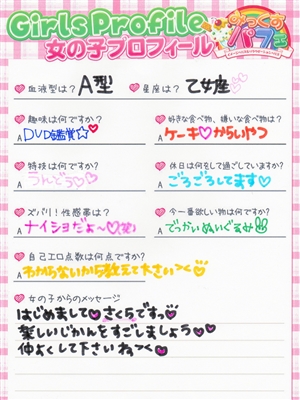 Girls Profile
女の子プロフィール
みっくす
パフェ
血液型は? A型
星座は? 乙女座
趣味は何ですか?
DVD鑑賞☆♡
好きな食べ物、嫌いな食べ物は?
ケーキ♡からいやつ
特技は何ですか?
うんどう♡♡
休日は何をして過ごしていますか?
ごろごろしてます♡
ズバリ!性感帯は?
ナイショだよ~♡(笑)
今一番欲しい物は何ですか?
でっかいぬいぐるみ
自己エロ点数は何点ですか?
わからないから教えて下さい~く♡
女の子からのメッセージ
はじめまして♡さくらですっ♡
楽しいじかんをすごしましょう♡♡
仲よくして下さいね~く♡